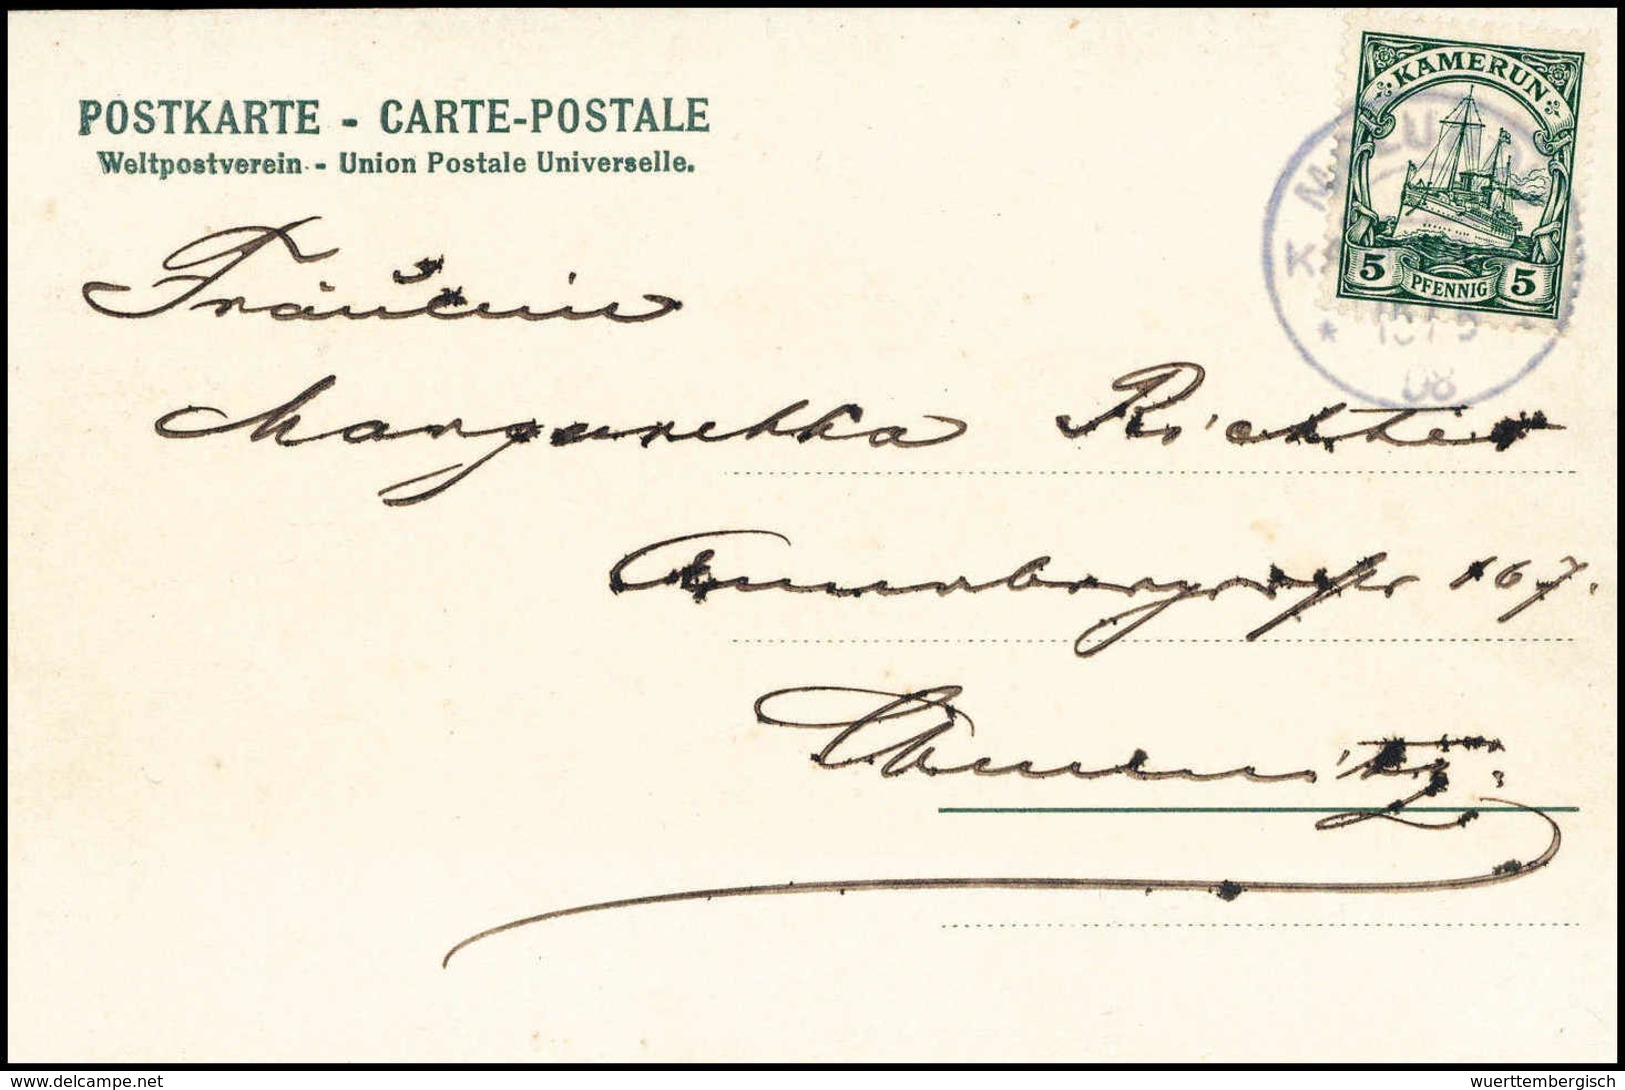 POSTKARTE - CARTE-POSTALE
Weltpostverein. - Union Postale Universelle.
KAMERUN
5 PFENNIG 5
08
Fräulein
Richter
167.
Chemnitz.
www.delcampe.net
wuerttembergisch